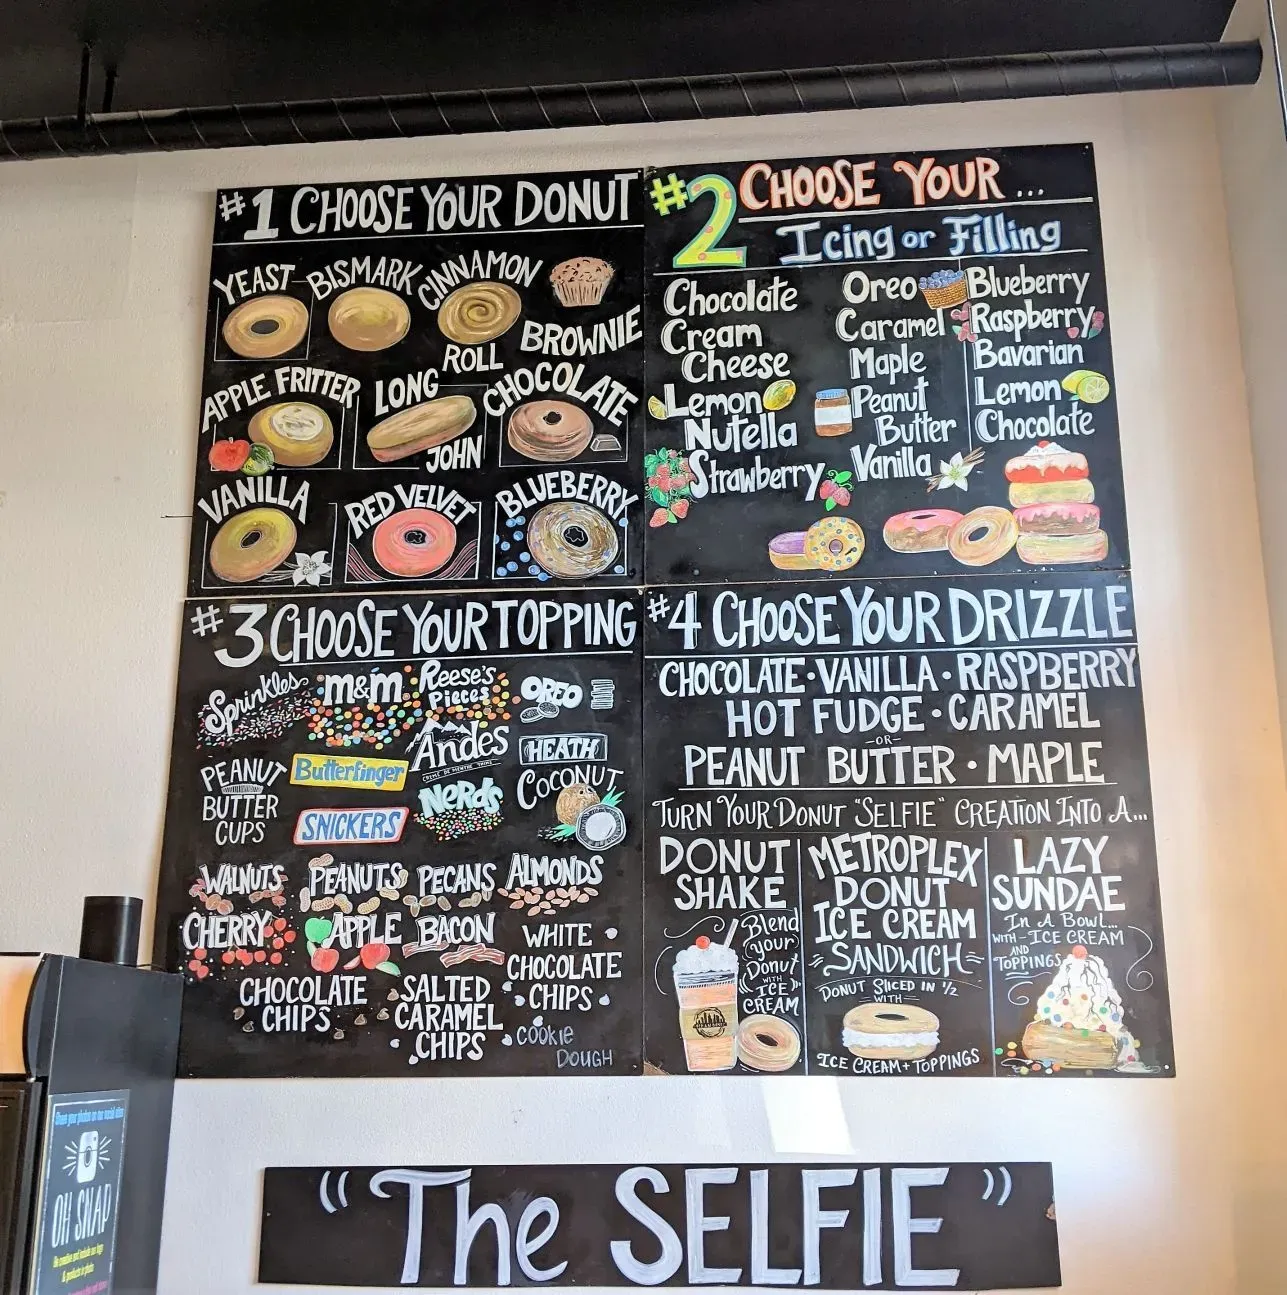 #1 CHOOSE YOUR DONUT
YEAST
BISMARK
CINNAMON
ROLL
BROWNIE
APPLE FRITTER
LONG
JOHN
CHOCOLATE
VANILLA
RED VELVET
BLUEBERRY
#2 CHOOSE YOUR...
Icing or Filling
Chocolate
Cream
Cheese
Lemon
Nutella
Strawberry
Oreo
Caramel
Maple
Peanut
Butter
Vanilla
Blueberry
Raspberry
Bavarian
Lemon
Chocolate
#3 CHOOSE YOUR TOPPING
Sprinkles
m&m
Reese's
Pieces
OREO
PEANUT
BUTTER
CUPS
Butterfinger
Andes
CREME DE MENTHE THINS
HEATH
SNICKERS
NeRDS
COCONUT
WALNUTS
PEANUTS
PECANS
ALMONDS
CHERRY
APPLE
BACON
WHITE
CHOCOLATE
CHIPS
CHOCOLATE
CHIPS
SALTED
CARAMEL
CHIPS
COOKIE
DOUGH
#4 CHOOSE YOUR DRIZZLE
CHOCOLATE • VANILLA • RASPBERRY
HOT FUDGE • CARAMEL
-OR-
PEANUT BUTTER • MAPLE
TURN YOUR DONUT "SELFIE" CREATION INTO A...
DONUT
SHAKE
Blend
your
Donut
WITH
ICE
CREAM
METROPLEX
DONUT
ICE CREAM
SANDWICH
DONUT SLICED IN 1/2
WITH
ICE CREAM + TOPPINGS
LAZY
SUNDAE
In A Bowl...
WITH - ICE CREAM
AND
TOPPINGS
"The SELFIE"
Share your photos on our social sites
OH SNAP
Be creative and include our logo
& products in photo